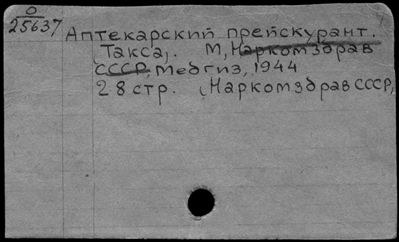 О
25637
Аптекарский прейскурант.
Такса,. М, Наркомздрав
СССР, Медгиз, 1944
28 стр. (Наркомздрав СССР,